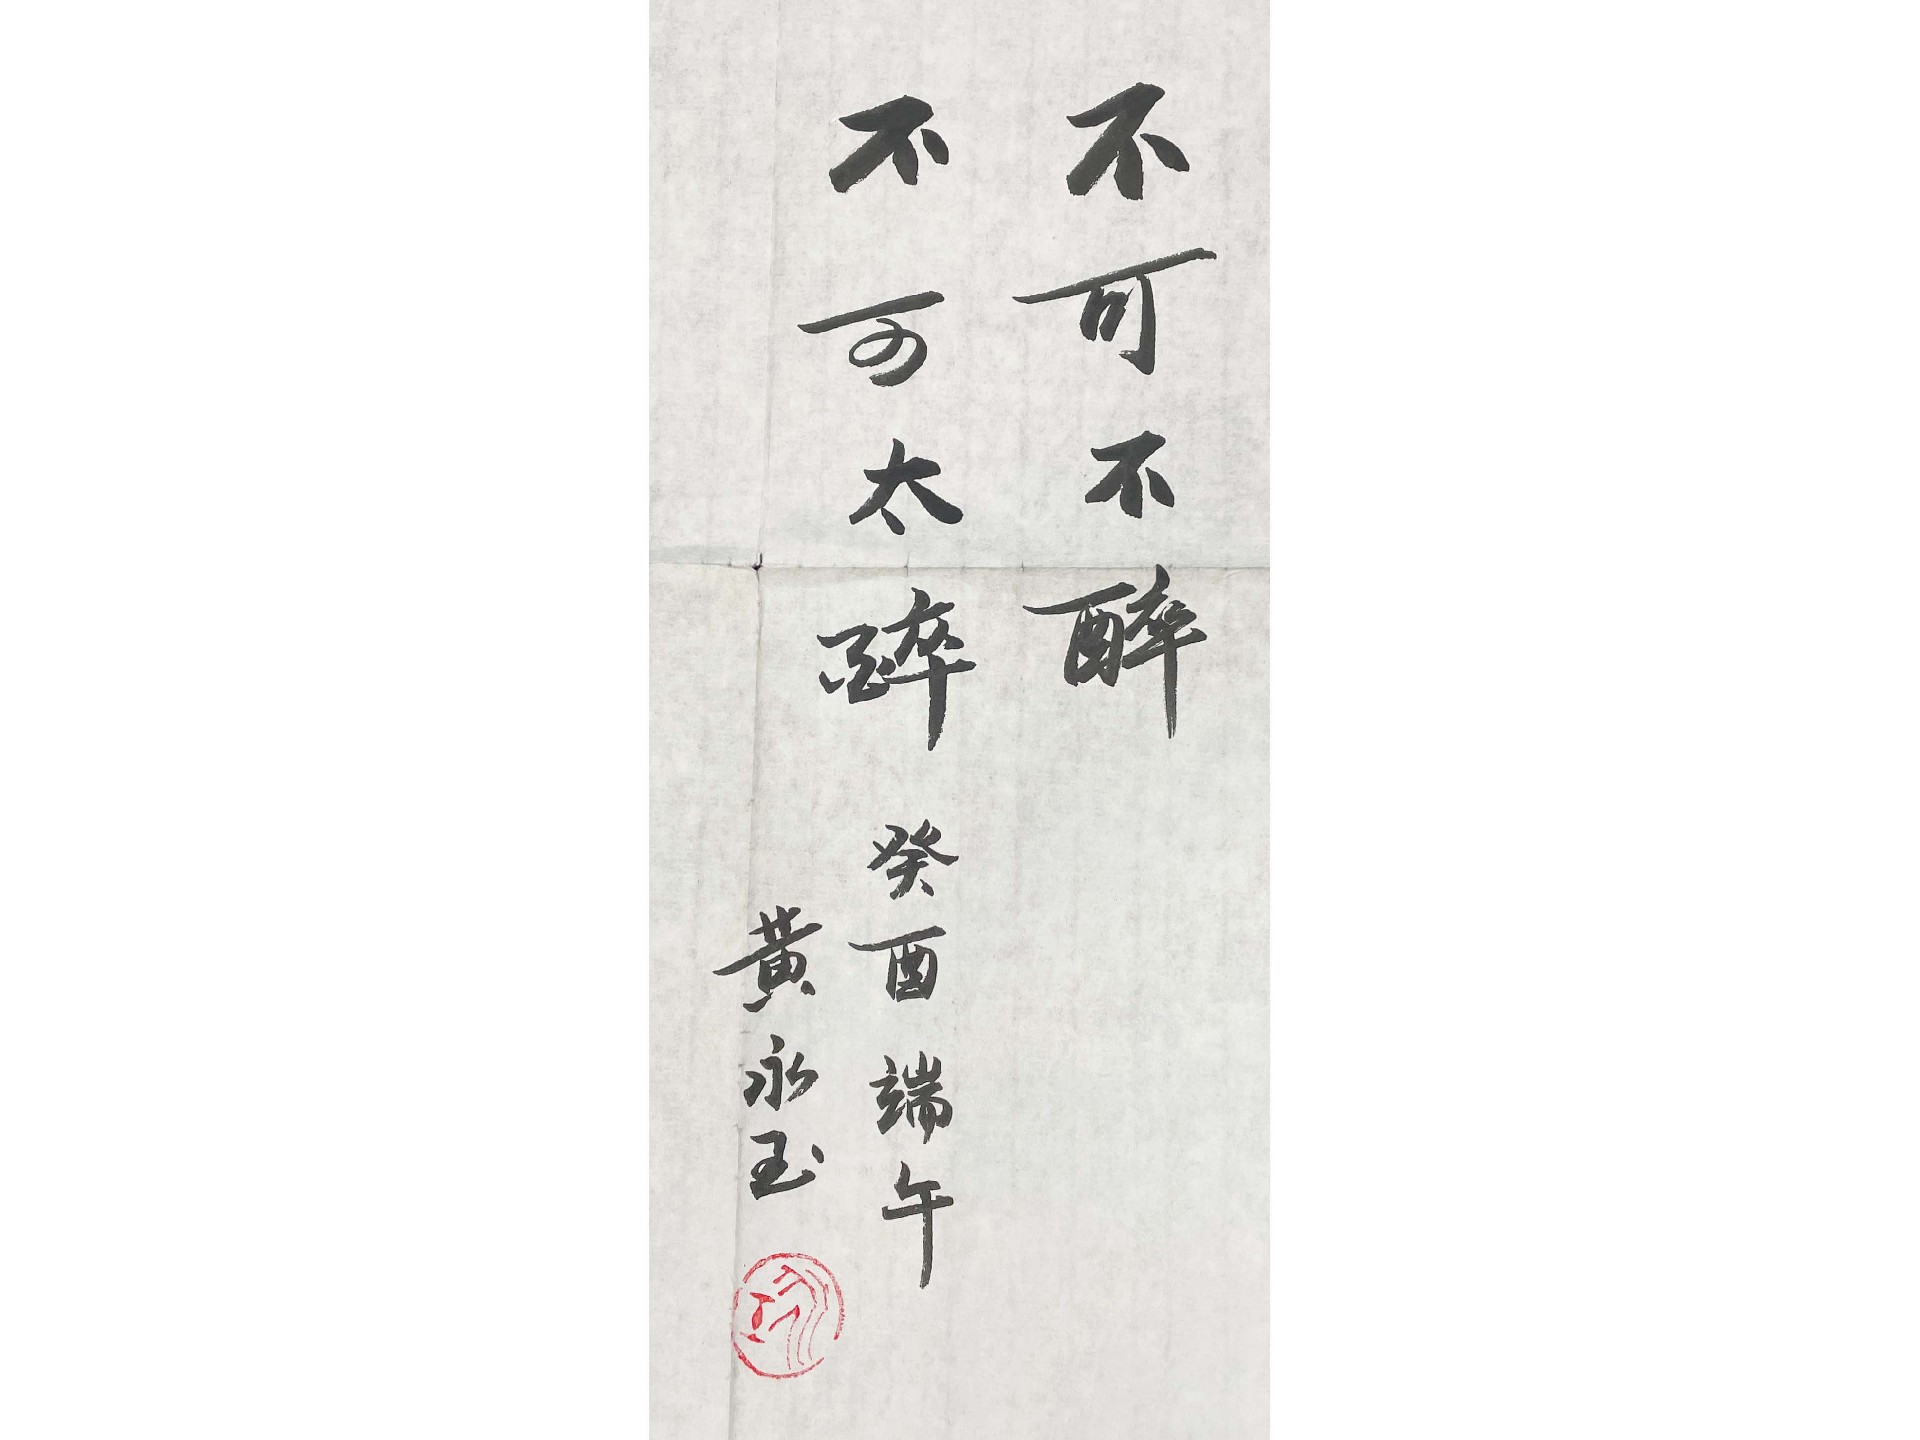 不可不醉
不可太醉 癸酉端午
黄永玉